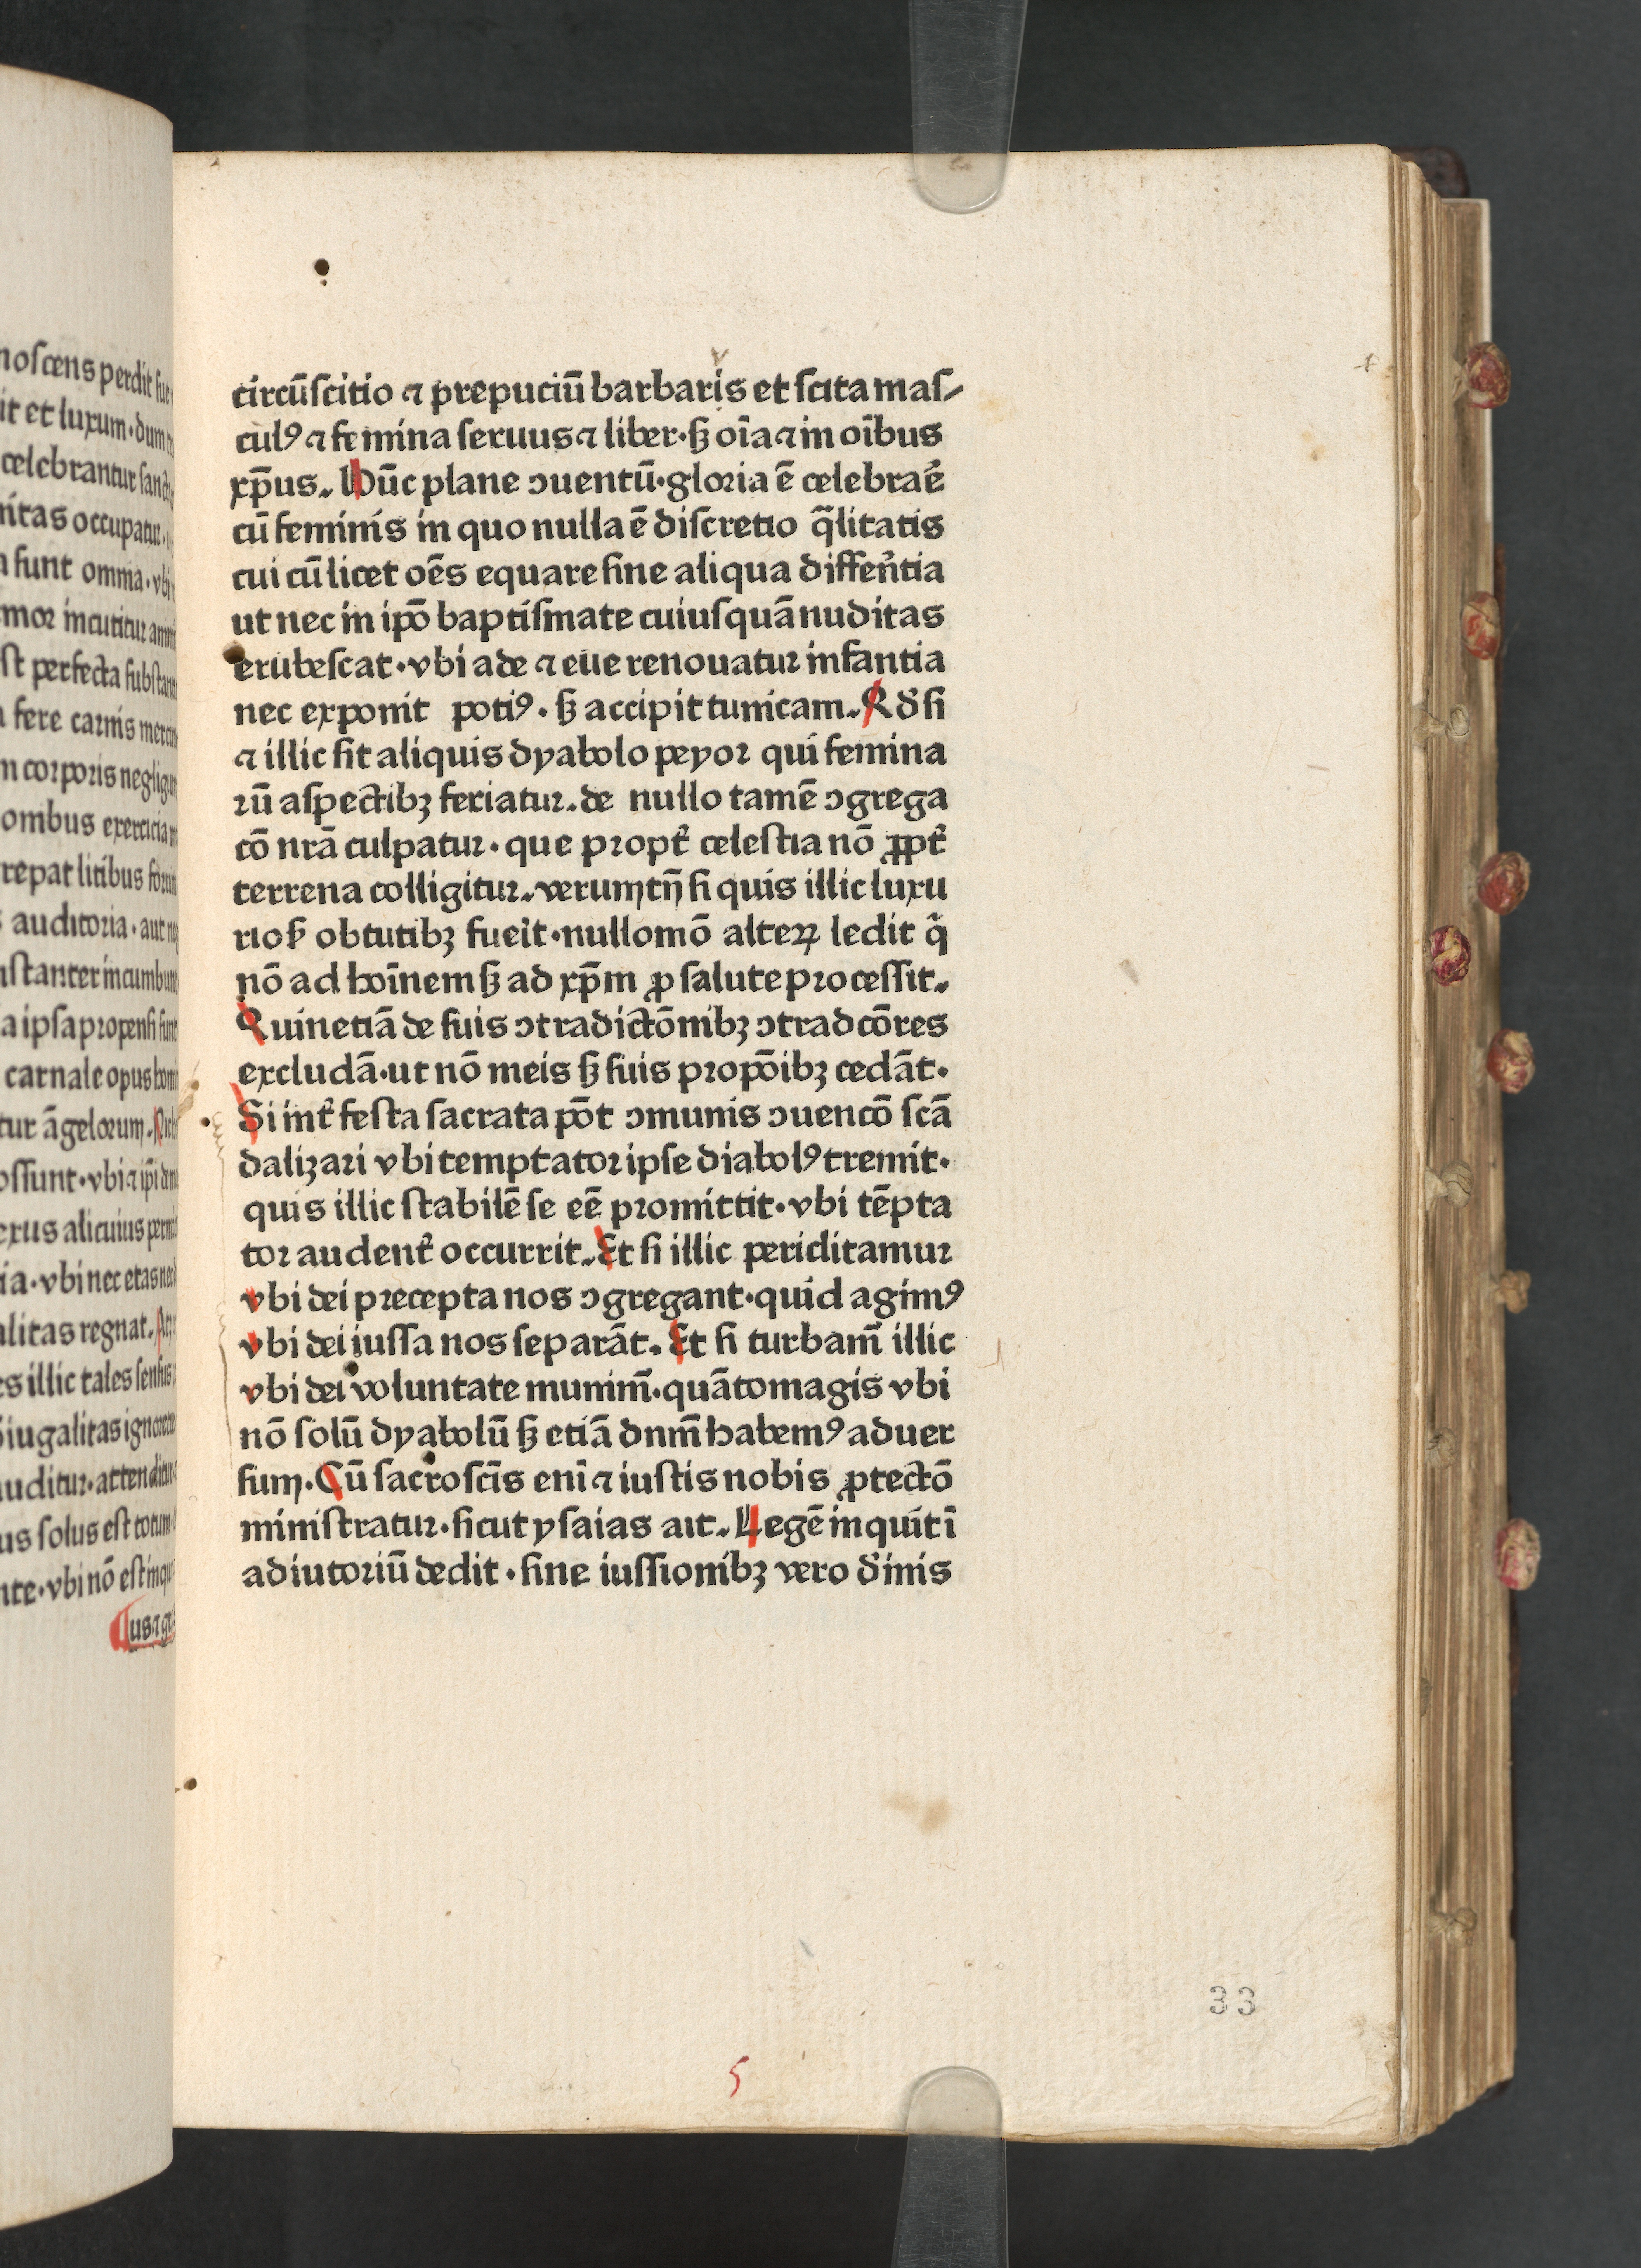 noſcens perdit
it et luxum · dum
celebrantur
nitas occupatur
ſunt omnia · vbi
mor incutitur
ſt perfecta
fere carnis
corporis
omibus exercicia
repat litibus
auditoria · aut
inſtanter
a ipſa propenſi ſunt
carnale opus
tur āgelorum .
oſſunt · vbi ⁊ ipi
exus alicuius
ia · vbi nec etas nec
alitas regnat .
es illic tales
iugalitas
auditur ·
us ſolus est totum
nte · vbi nō eſt
circūſcitio ⁊ prepuciū barbaris et ſcita maſ⸗
culꝰ ⁊ femina ſeruus ⁊ liber · ſꝫ oīa ⁊ in oībus
xp̄us. Hūc plane ↄuentū · gloria ē celebrar̄e
cū feminis in quo nulla ē diſcretio q̄litatis
cui cū licet oēs equare ſine aliqua differ̄ntia
ut nec in ipō baptiſmate cuiuſquā nuditas
erubeſcat · vbi ade ⁊ eue renouatur infantia
nec exponit potiꝰ · ſꝫ accipit tunicam. Qď ſi
⁊ illic ſit aliquis dyabolo peyor qui femina
rū aſpectibꝫ feriatur. de nullo tamē ↄgrega
cō nrā culpatur · que propt̄ celeſtia nō ꝓpt̄
terrena colligitur. verumtn̄ ſi quis illic luxu
rioſ̄ obtutibꝫ fueīt · nullomō alteꝝ ledit q̄
nō ad hoīnem ſꝫ ad xp̄m ꝓ ſalute proceſſit.
Quinetiā de ſuis ↄtradictōnibꝫ ↄtradcōres
excludā · ut nō meis ſꝫ ſuis propōibꝫ cedāt ·
Si int̄ feſta ſacrata pōt ↄmunis ↄuencō ſcā
dalizari vbi temptator ipſe diabolꝰ tremit ·
quis illic ſtabilē ſe eē promittit · vbi tēpta
tor audent̄ occurrit. Et ſi illic periditamur
vbi dei precepta nos ↄgregant · quid agimꝰ
vbi dei iuſſa nos ſeparāt. Et ſi turbam̄ illic
vbi dei voluntate munim̄ · quāto magis vbi
nō ſolū dyabolū ſꝫ etiā dnm̄ habemꝰ aduer
ſum. Cū ſacroſcīs enī ⁊ iuſtis nobis ꝓtectō
miniſtratur · ſicut yſaias ait. Legē inquit ī
adiutoriū dedit · ſine iuſſionibꝫ vero d̄inis
33
5